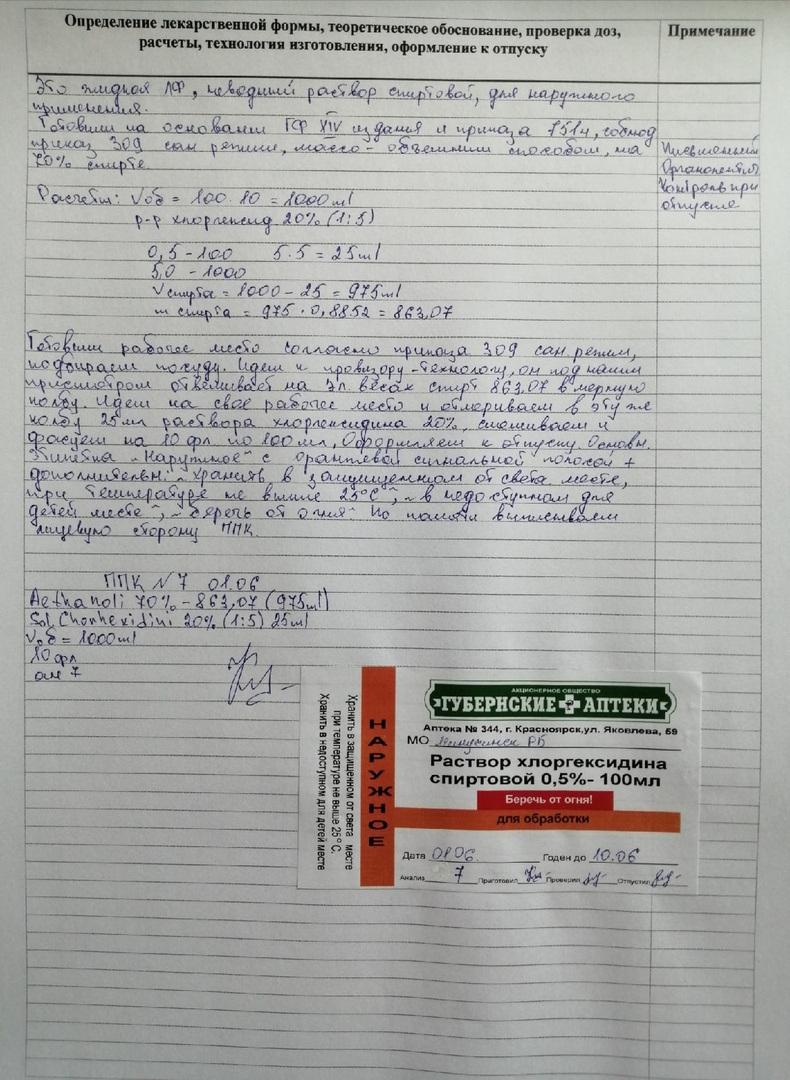 Определение лекарственной формы, теоретическое обоснование, проверка доз,
расчеты, технология изготовления, оформление к отпуску
Примечание
Это жидкая ЛФ, неводный раствор спиртовой, для наружного
применения.
Готовим на основании ГФ XIV издания и приказа 751н, соблюд
приказ 309 сан режим, массо-объемным способом, на
70% спирте.
Письменный
Органолептич
Контроль при
отпуске
Расчеты: Vоб = 100 · 10 = 1000 ml
р-р хлоргексид 20% (1:5)
0,5 - 100 5·5 = 25ml
5,0 - 1000
V спирта = 1000 - 25 = 975ml
m спирта = 975 · 0,8852 = 863,07
Готовим рабочее место согласно приказа 309 сан. режим,
подбираем посуду. Идем к провизору-технологу, он под нашим
присмотром отвешивает на эл. весах спирт 863,07 в мерную
колбу. Идем на свое рабочее место и отмериваем в эту же
колбу 25мл раствора хлоргексидина 20%, смешиваем и
фасуем на 10 фл по 100 мл, Оформляем к отпуску. Основн.
этикетка „Наружное" с оранжевой сигнальной полосой +
дополнительн: „Хранить в защищенном от света месте,
при температуре не выше 25°С", „в недоступном для
детей месте", „Беречь от огня". По памяти выписываем
лицевую сторону ППК.
ППК N7 01.06
Aethanoli 70% - 863,07 (975ml)
Sol. Chorhexidini 20% (1:5) 25ml
Vоб = 1000ml
10 фл
ан 7
Хранить в защищенном от света месте
при температуре не выше 25° С.
Хранить в недоступном для детей месте
НАРУЖНОЕ
АКЦИОНЕРНОЕ ОБЩЕСТВО
ГУБЕРНСКИЕ АПТЕКИ
Аптека № 344, г. Красноярск,ул. Яковлева, 59
МО РБ
Раствор хлоргексидина
спиртовой 0,5%- 100мл
Беречь от огня!
для обработки
Дата 01.06. Годен до 10.06
Анализ 7 Приготовил Проверил Отпустил